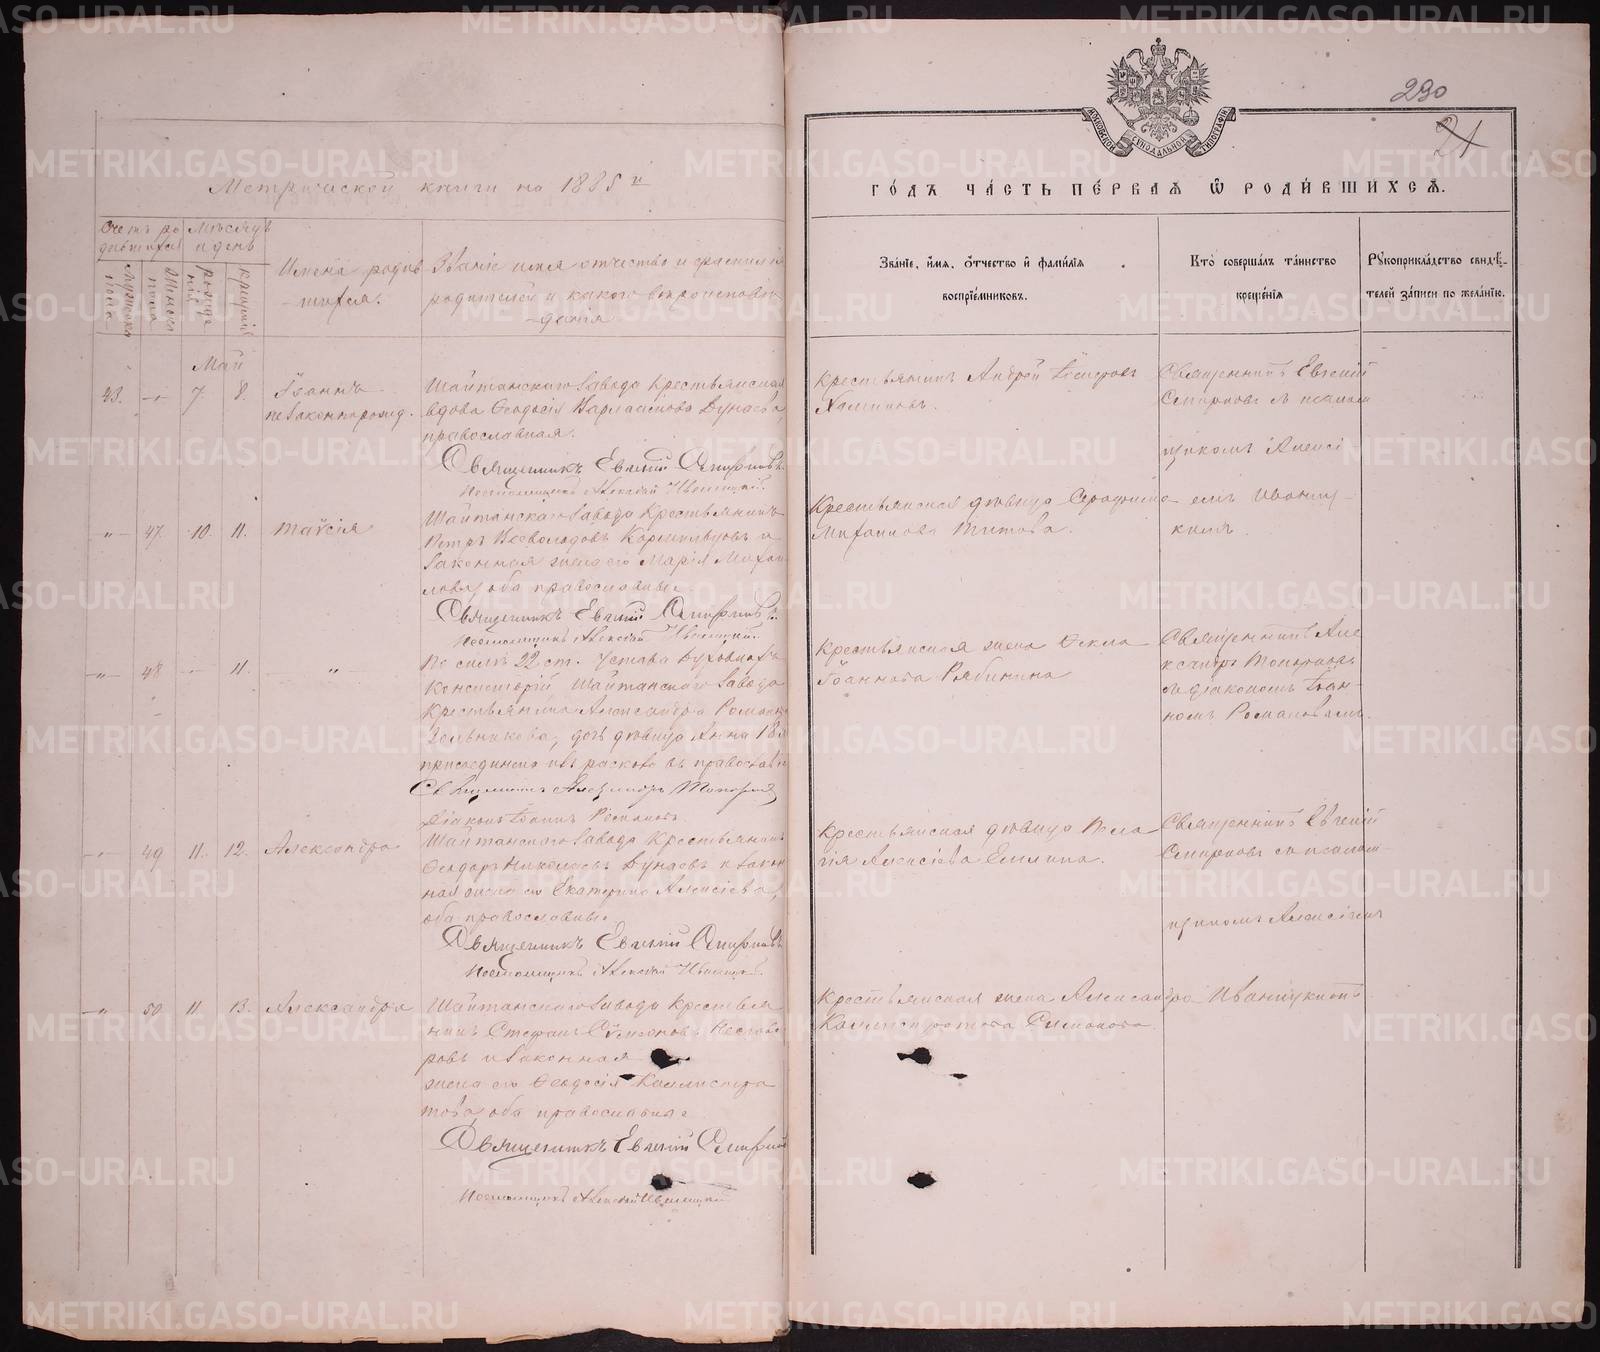 METRIKI.GASO-URAL.RU
290
21
МОСКОВСКОЙ СѴНОДАЛЬНОЙ ТИПОГРАФІИ
Метрической книги на 1885 й
ГО́ДЪ ЧА́СТЬ ПЕ́РВАѦ Ѡ҆ РОДИ́ВШИХСѦ.
Счетъ ро
дившихся
Мѣсяцъ
и день
Мужска
пола
Женска
пола
рожде
нія
крещенія
Имена родив
-шихся.
Званіе имя отчество и фамилія
родителей и какого вѣроисповѣ
-данія
Зва́нїе, и҆́мѧ, ѻ҆́тчество и҆ фамѝлїѧ
воспрїе́мниковъ.
Кто̀ соверша́лъ та́инство
креще́нїѧ
Рꙋкоприкла́дство свидѣ́-
телей за́писи по жела́нїю.
Май
43. 7. 8. Іоаннъ
незаконнорожд.
Шайтанского завода Крестьянская
вдова Ѳеодосія Варлаамова Дунаева,
православная.
Священникъ Евгеній Смирновъ.
Псаломщикъ Алексѣй
Крестьянинъ Андрей
Священникъ Евгеній
Смирновъ съ псалом
щикомъ Алексі
емъ Иванцу-
кимъ.
47. 10. 11. Таисія
Шайтанскаго завода Крестьянинъ
Петръ Всеволодовъ Кормильцовъ и
законная жена его Марія Михаи
лова, оба православные.
Священникъ Евгеній Смирновъ
Псаломщикъ Алексѣй
Крестьянская дѣвица Серафима
Михаилова Титова.
48 11. "
По силѣ 22 ст. Устава Духовныхъ
Консисторій, Шайтанскаго завода
Крестьянина Александра Романа
дочь дѣвица Анна 18 л
присоединена изъ раскола въ православіе
Священникъ Александръ Топорковъ
Діаконъ Іоаннъ Романовъ
Крестьянская жена Ѳекла
Іоаннова Рябинина
Священникъ Але
ксандръ Топорковъ
съ діакономъ Іоан-
номъ Романовымъ.
49 11. 12. Александра
Шайтанского завода Крестьянинъ
Ѳеодоръ Николаевъ Дунаевъ и закон
ная жена его Екатерина Алексіева,
оба православные.
Священникъ Евгеній Смирновъ
Псаломщикъ Алексѣй
Крестьянская дѣвица Пела
гія Алексіева
Священникъ Евгеній
Смирновъ съ псалом-
щикомъ Алексіемъ
Иванцукимъ
50 11. 13. Александра
Шайтанского завода Крестья
нинъ Стефанъ Семеновъ Нестеро
ровъ и законная
жена его Ѳеодосія Каллистра
това, оба православные
Священникъ Евгеній Смирнов
Псаломщикъ Алексѣй
Крестьянская жена Александра
Каллистратова Симанова.